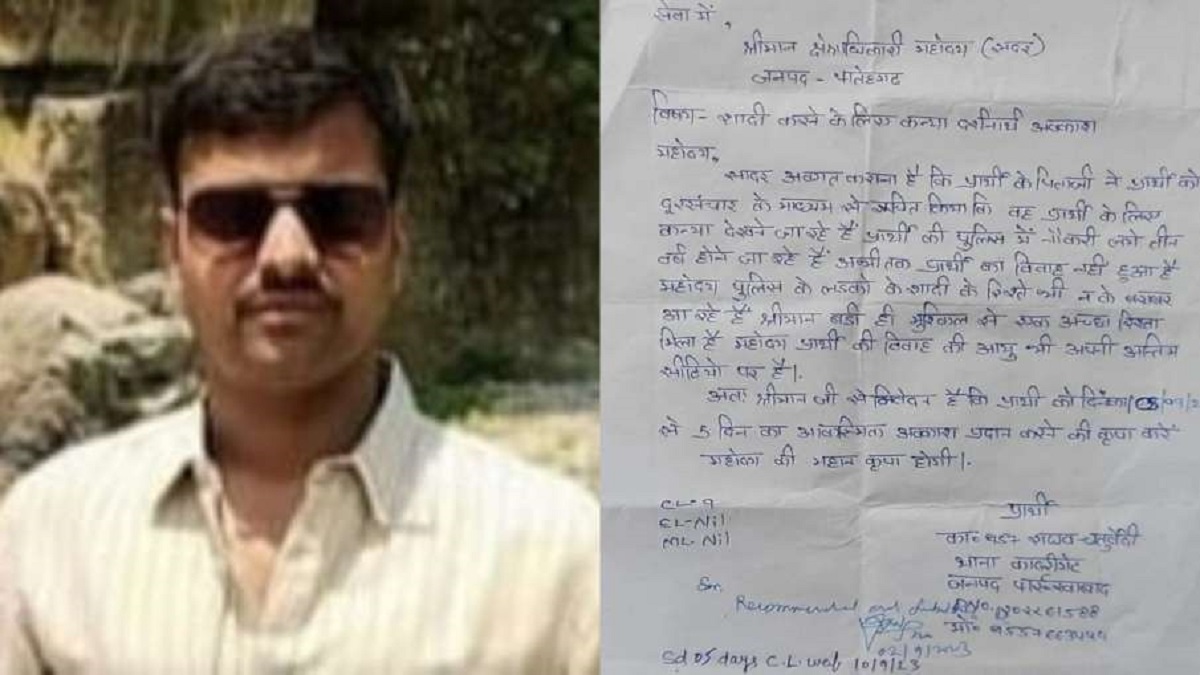 सेवा में,
श्रीमान क्षेत्राधिकारी महोदय (सदर)
जनपद - फतेहगढ
विषय - शादी करने के लिए कन्या दर्शनार्थ अवकाश
महोदय,
सादर अवगत कराना है कि प्रार्थी के पिताजी ने प्रार्थी को
दूरसंचार के माध्यम से सूचित किया कि वह प्रार्थी के लिए
कन्या देखने जा रहे हैं प्रार्थी की पुलिस में नौकरी लगे तीन
वर्ष होने जा रहे हैं अभी तक प्रार्थी का विवाह नहीं हुआ है
महोदय पुलिस के लडको के शादी के रिश्ते भी न के बराबर
आ रहे हैं श्रीमान बडी ही मुश्किल से एक अच्छा रिश्ता
मिला है महोदय प्रार्थी की विवाह की आयु भी अपनी अन्तिम
सीढियो पर है।
अतः श्रीमान जी से निवेदन है कि प्रार्थी को दिनांक
से 5 दिन का आकस्मिक अवकाश प्रदान करने की कृपा करें
महोदय की महान कृपा होगी।
प्रार्थी
CL-9
EL-Nil
ML-Nil
का० राघव चतुर्वेदी
थाना कादरीगेट
जनपद फर्रुखाबाद
Sir,
Recommended and
मो०
02/9/2023
Sd 05 days C.L. wef 10/9/23